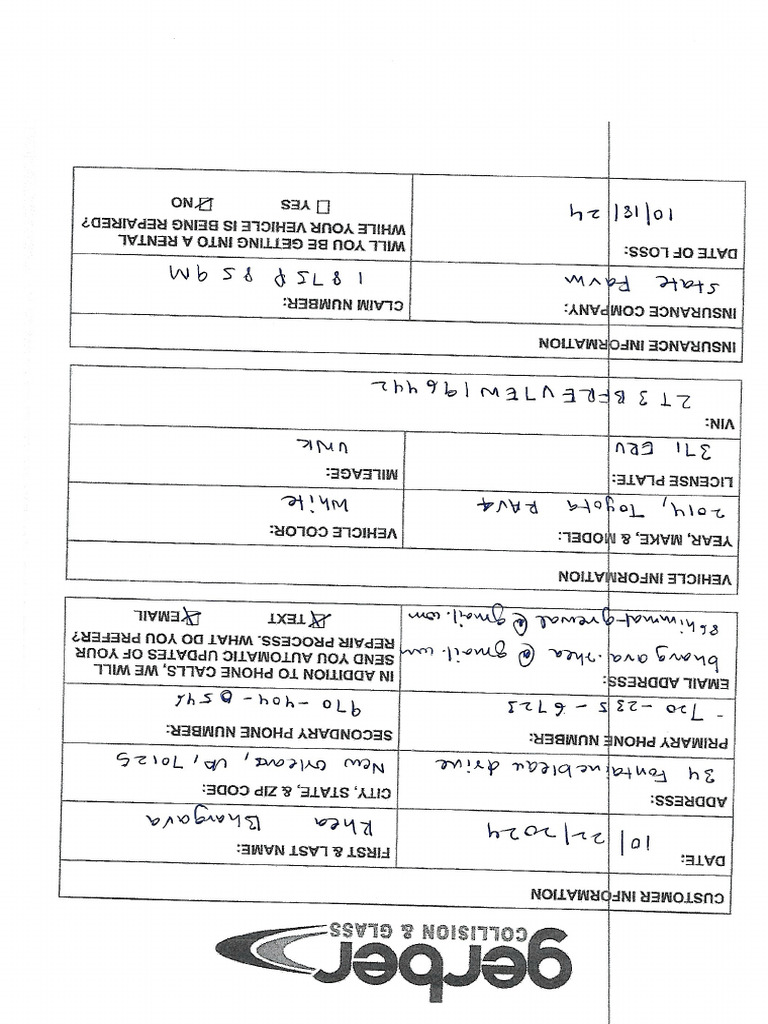 gerber
COLLISION & GLASS
CUSTOMER INFORMATION
DATE: 10/22/2024
FIRST & LAST NAME: Rhea Bhargava
ADDRESS: 34 Fontainebleau drive
CITY, STATE, & ZIP CODE: New Orleans, LA, 70125
PRIMARY PHONE NUMBER: - 720-235-6723
SECONDARY PHONE NUMBER: 970-404-0546
EMAIL ADDRESS:
bhargava.rhea@gmail.com
@gmail.com
IN ADDITION TO PHONE CALLS, WE WILL
SEND YOU AUTOMATIC UPDATES OF YOUR
REPAIR PROCESS. WHAT DO YOU PREFER?
TEXT EMAIL
VEHICLE INFORMATION
YEAR, MAKE, & MODEL: 2014, Toyota RAV4
VEHICLE COLOR: White
LICENSE PLATE: 371 ERV
MILEAGE: UNK
VIN: 2T3BFREV7EW196442
INSURANCE INFORMATION
INSURANCE COMPANY: State Farm
CLAIM NUMBER: 1875P859M
DATE OF LOSS: 10/18/24
WILL YOU BE GETTING INTO A RENTAL
WHILE YOUR VEHICLE IS BEING REPAIRED?
YES NO